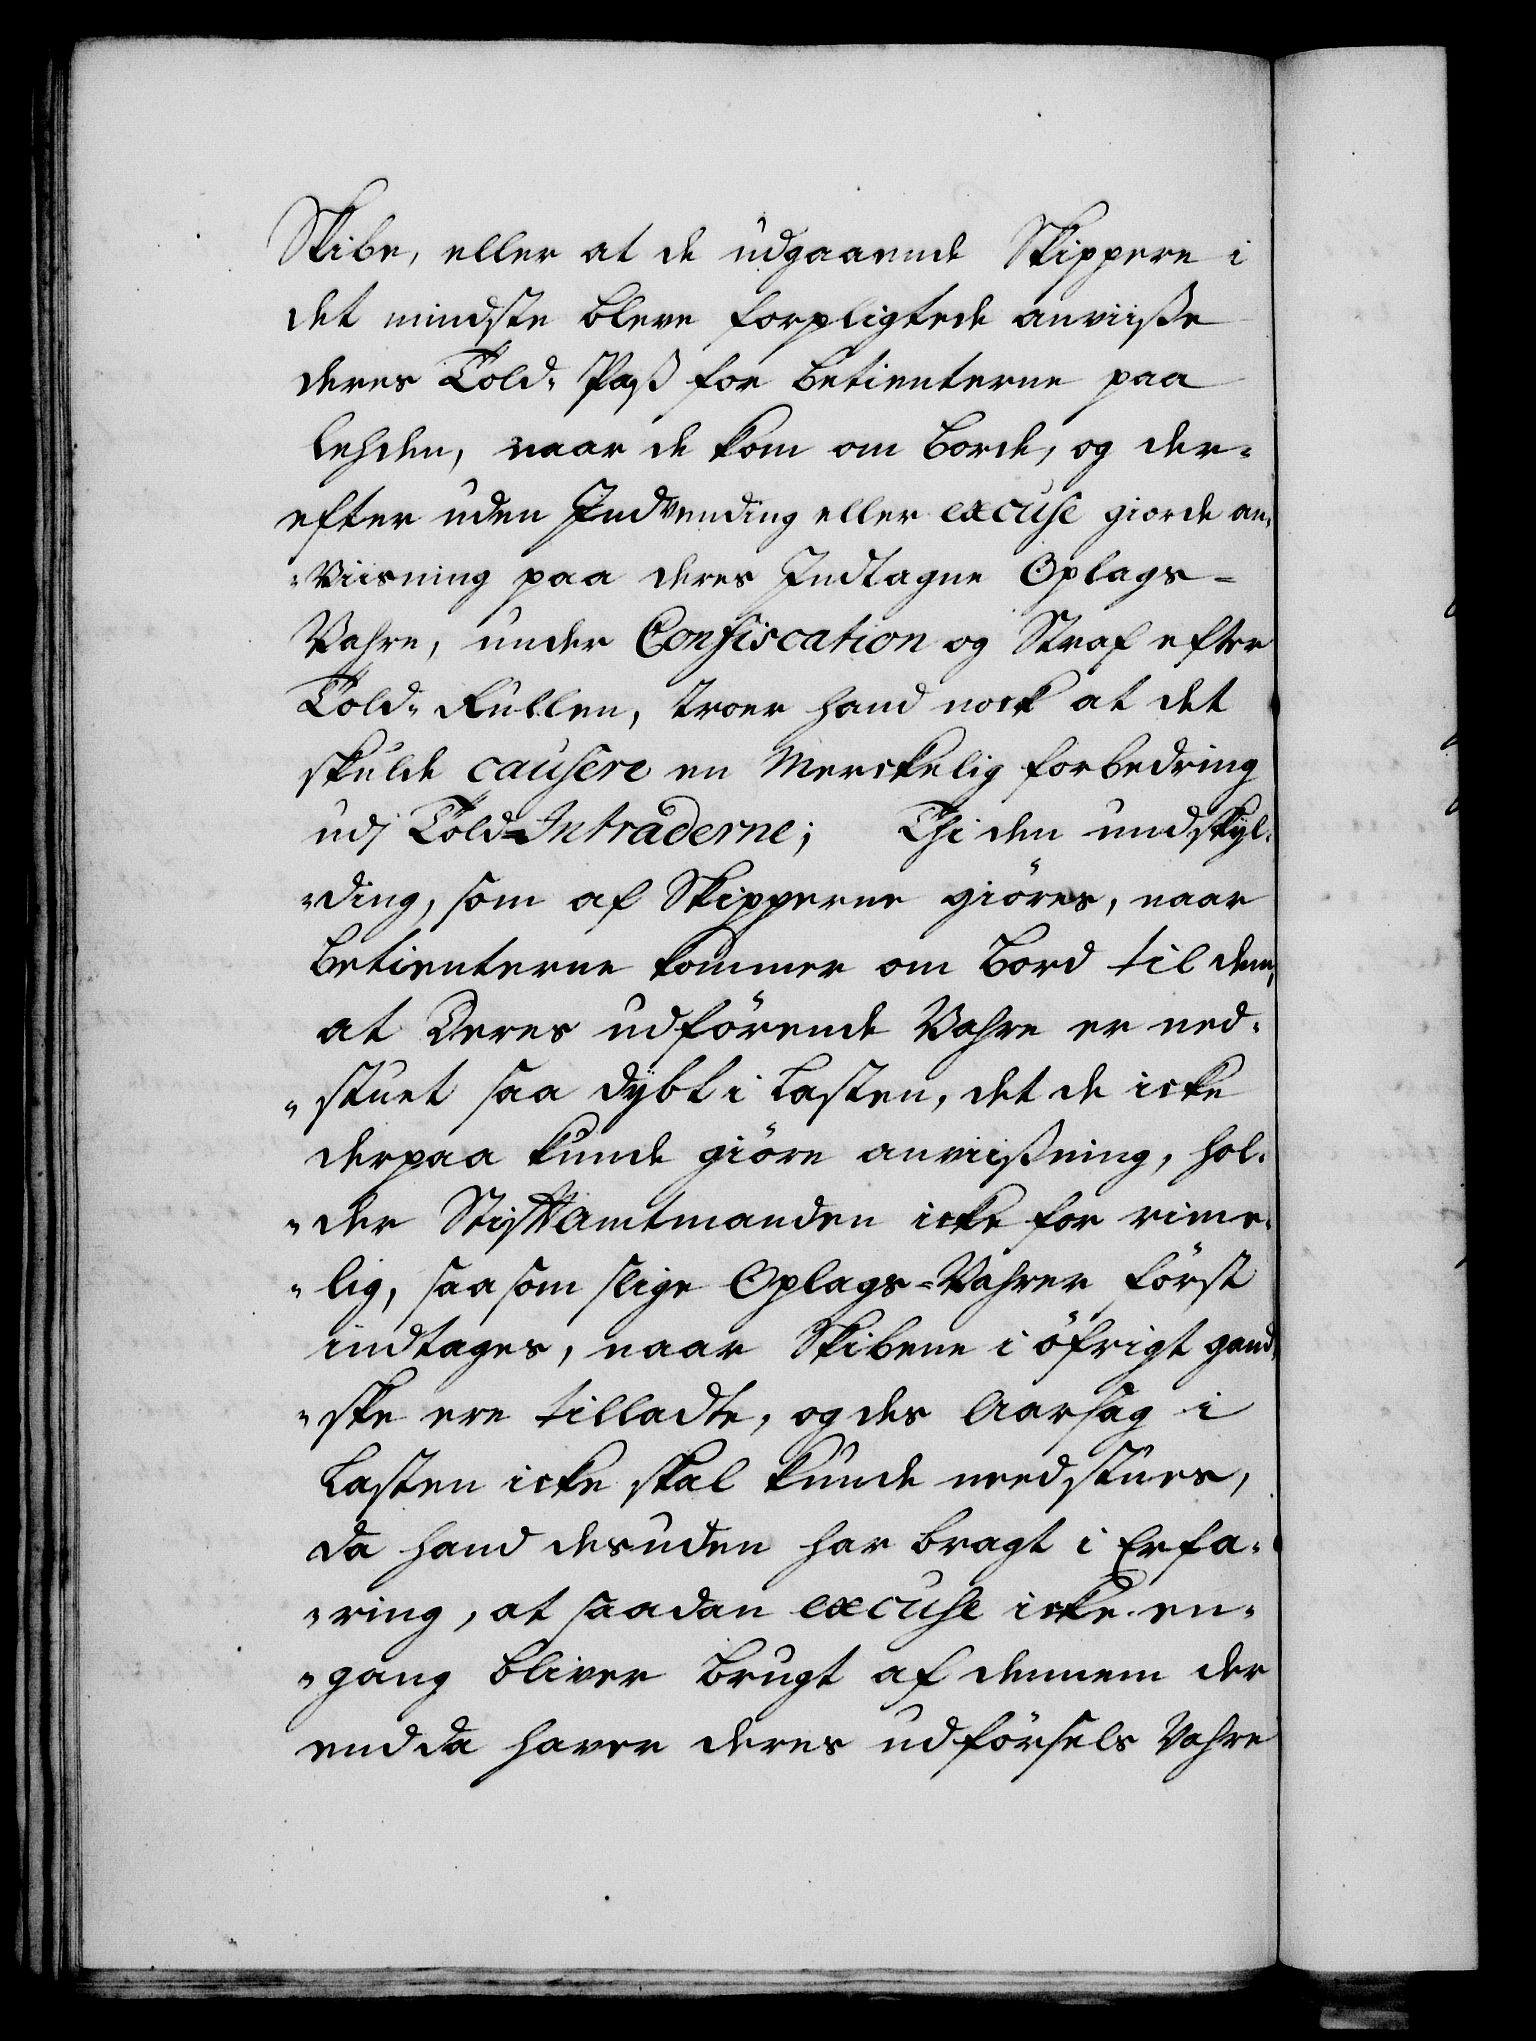 Skibe, eller at de udgaaende Skippere i
det mindste bleve forpligtede anviiße
deres Told-Paß for betienterne paa
Rehden, naar de kom om Borde, og der-
efter uden Indvending eller excuse giorde an-
-Viisning paa deres Indtagne Oplags-
Vahre, under Confiscation og Straf efter
Told-Rullen, troer hand nock at det
skulde causere en Merckelig forbedring
udj Told-Intraderne; Thi den undskyl-
-ding, som af Skipperne giöres, naar
Betienterne kommer om Bord til dem,
at Deres udförende Vahre er ned-
-stuet saa dybt i Lasten, det de icke
derpaa kunde giöre anviißning, hol-
-der Stiftamtmanden icke for rime-
-lig, saasom slige Oplags-Vahrer först
indtages, naar Skibene i öfrigt gand-
-ske ere tilladte, og des Aarsag i
Lasten icke skal kunde needstues,
da hand desuden har bragt i Erfa-
-ring, at saadan excuse icke en-
-gang bliver brugt af dennem der
endda haver deres udförsels Vahre